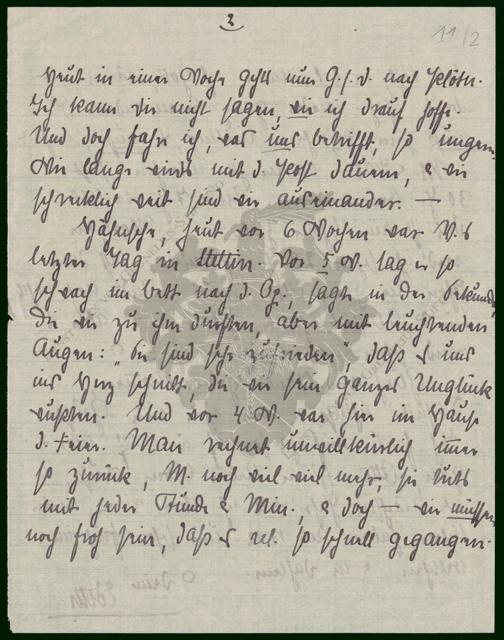 2
11/2
Heut in einer Woche gehts nun G. s. d. nach Klöstn.
Ich kann dir nicht sagen, wie ich drauf hoffe.
Und doch fahr ich, was uns betrifft, so ungern.
Wie lange wirds mit d. Post dauern, & wie
schrecklich weit sind wir auseinander. —
Hähnsche, heut vor 6 Wochen war V.s
letzter Tag in Stettin. Vor 5 W. lag er so
schwach im bett nach d. Op., sagte in der Sekunde,
die wir zu ihm durften, aber mit leuchtenden
Augen: "Sie sind sehr zufrieden", daß es uns
ins Herz schnitt, die wir sein ganzes Unglück
wußten. Und vor 4 W. war hier im Hause
d. Feier. Man rechnet unwillkürlich immer
so zurück, M. noch viel viel mehr, sie tuts
mit jeder Stunde & Min., & doch — wir müssen
noch froh sein, daß es rel. so schnell gegangen.